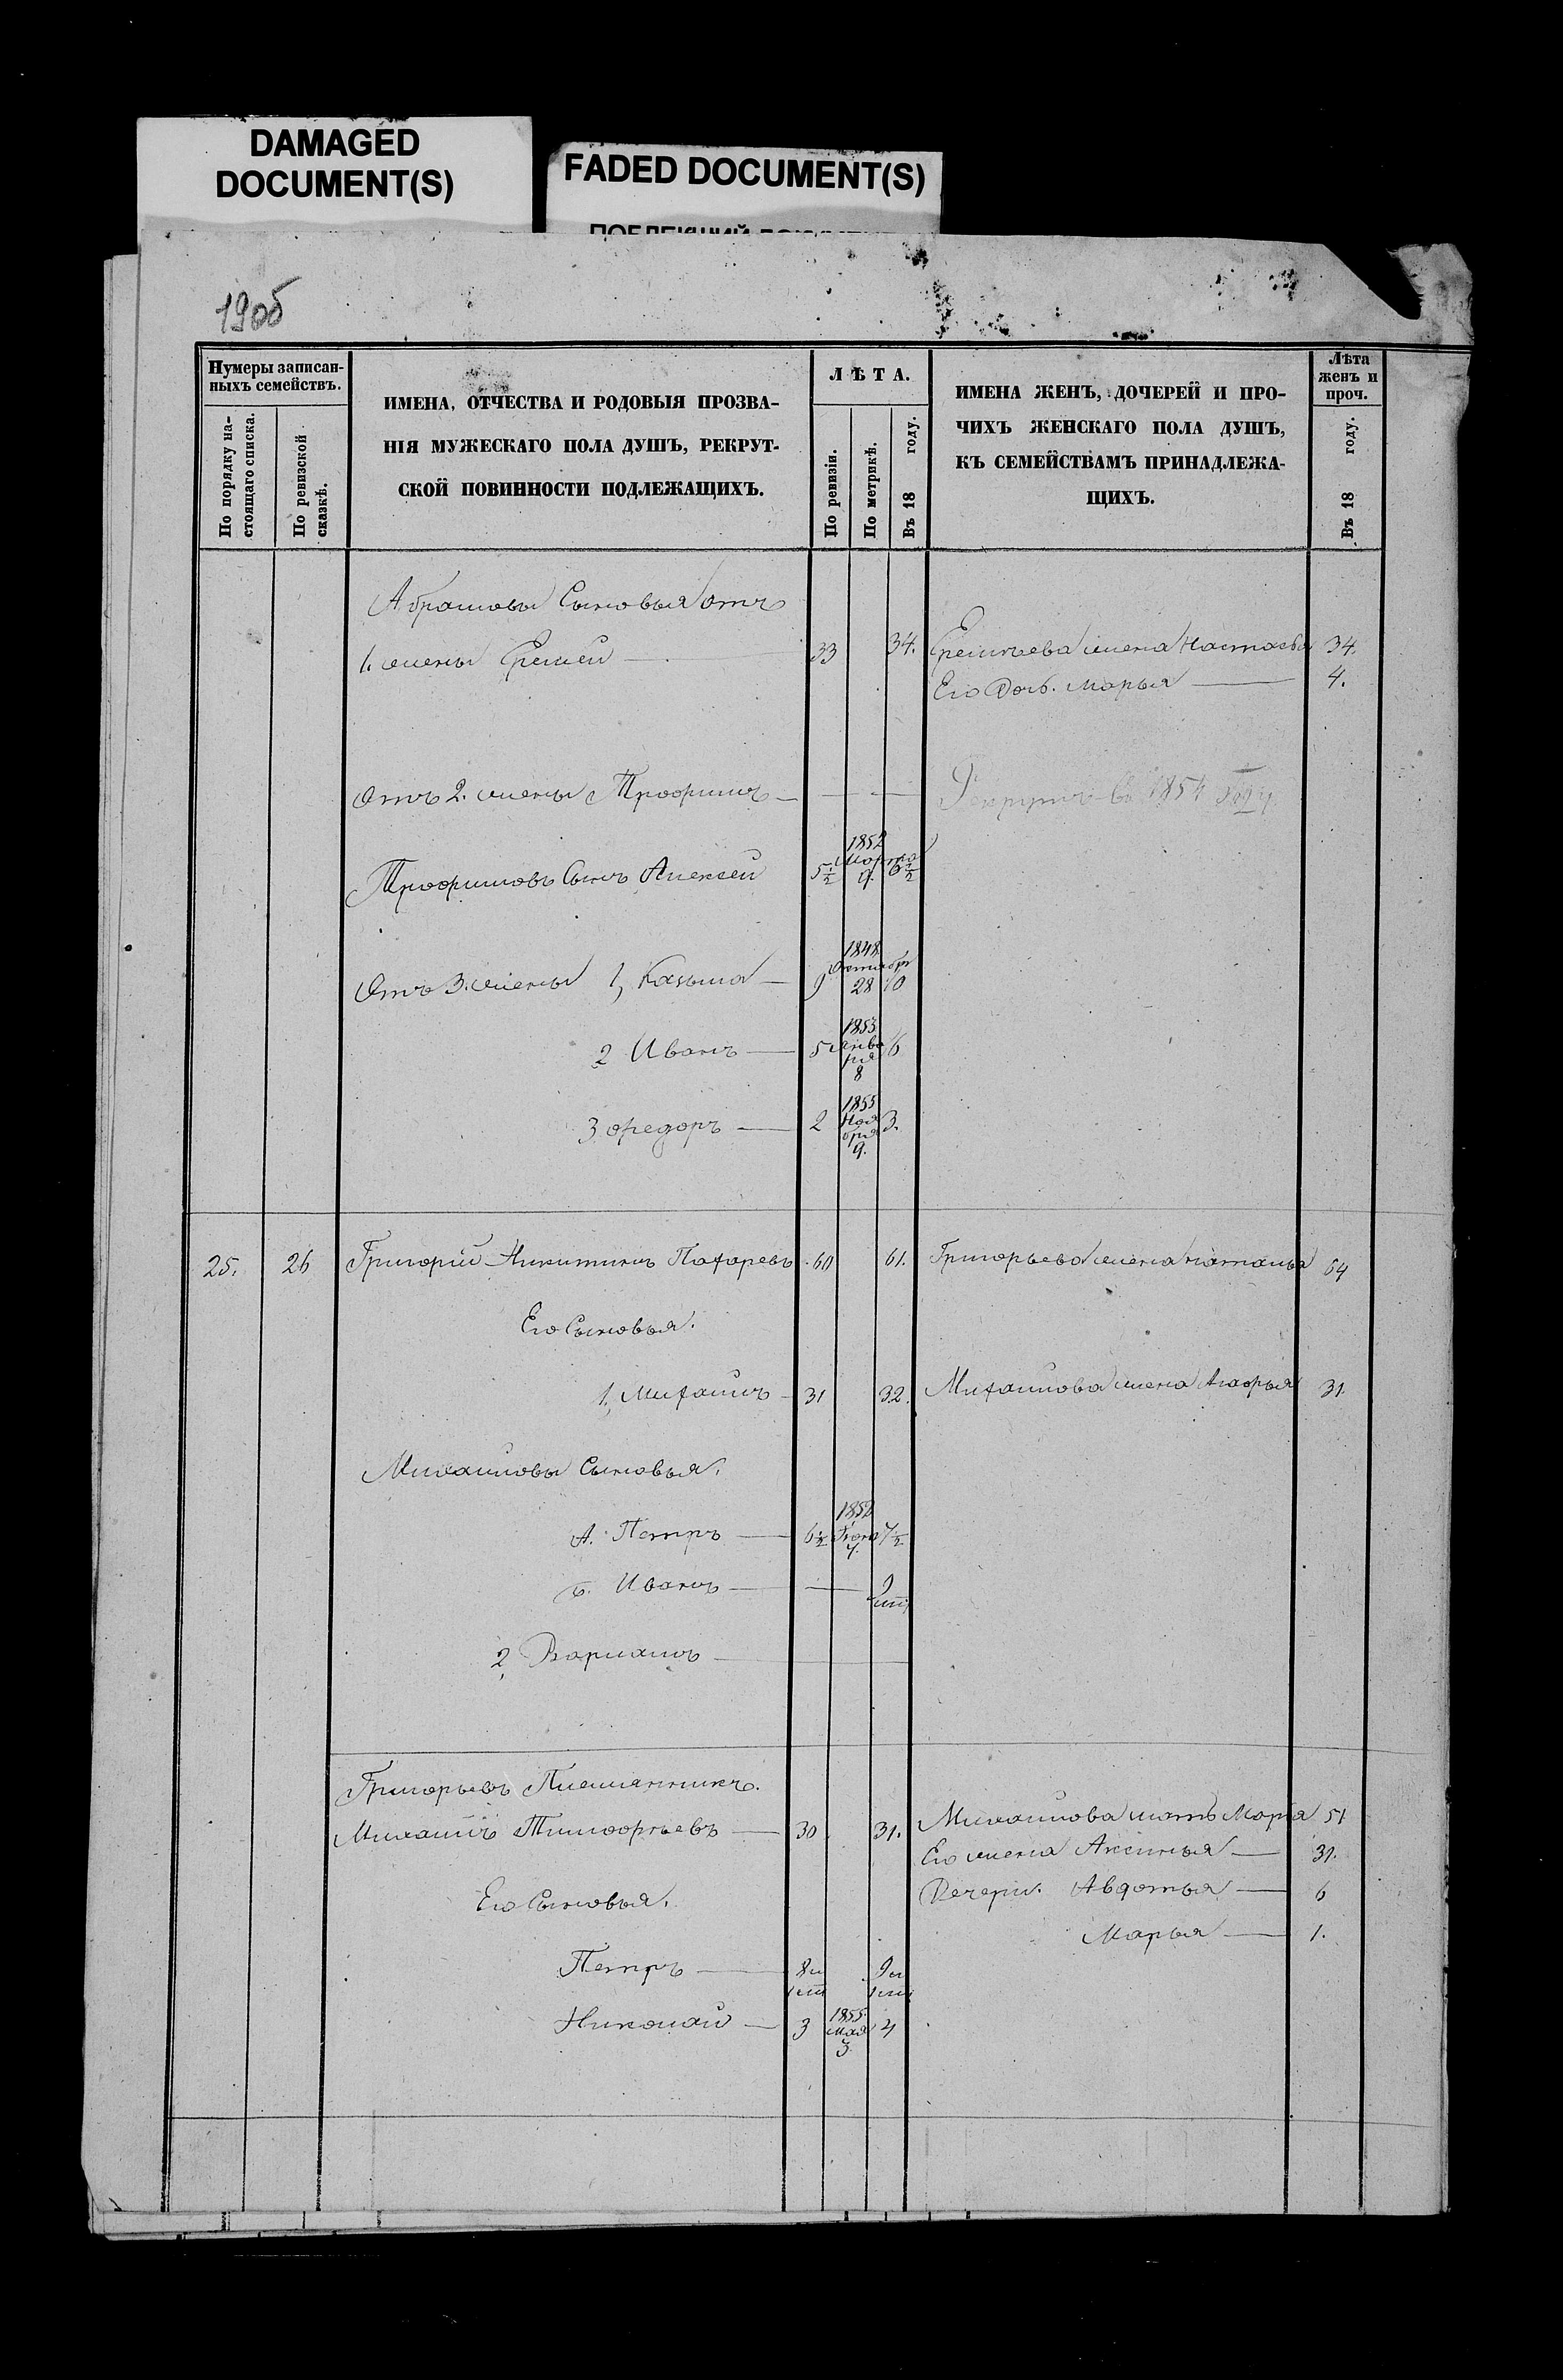 DAMAGED
DOCUMENT(S)
FADED DOCUMENT(S)
1906
Нумеры записан-
ныхъ семействъ.
По порядку на-
стоящаго списка.
По ревизской
сказкѣ.
ИМЕНА, ОТЧЕСТВА И РОДОВЫЯ ПРОЗВА-
НІЯ МУЖЕСКАГО ПОЛА ДУШЪ, РЕКРУТ-
СКОЙ ПОВИННОСТИ ПОДЛЕЖАЩИХЪ.
ЛѢТА.
По ревизіи.
По метрикѣ.
Въ 18 году.
ИМЕНА ЖЕНЪ, ДОЧЕРЕЙ И ПРО-
ЧИХЪ ЖЕНСКАГО ПОЛА ДУШЪ,
КЪ СЕМЕЙСТВАМЪ ПРИНАДЛЕЖА-
ЩИХЪ.
Лѣта
женъ и
проч.
Въ 18 году.
Абрамовы Сыновья отъ
1. жены Еремей 33 34. Еремѣева жена Настасья 34.
Его Дочь Марья 4.
Отъ 2. жены Трофимъ — Рекрутъ въ 1854 году
Трофимовъ Сынъ Алексей 5½ 1852 Марта 9. 6½
Отъ 3. жены 1, Казьма 9 1848 Октября 28 10
2 Иванъ 5 1853 Января 8 6
3 Федоръ 2 1855 Ноября 9. 3.
25. 26 Григорій Никитинъ Пахаревъ 60 61. Григорьева жена Наталья 64
Его Сыновья.
1, Михаилъ 31 32. Михаилова жена Агафья 31.
Михаиловы Сыновья.
А. Петръ 6½ 1852 7½
б. Иванъ — 9
2, Варламъ —
Григорьевъ Племянникъ.
Михаилъ Тимофѣевъ 30 31. Михаилова мать Марфа 51
Его жена Аксинья 31.
Его Сыновья. Дочери. Авдотья 6
Марья 1.
Петръ 8 9
Николай 3 1855 Мая 3. 4